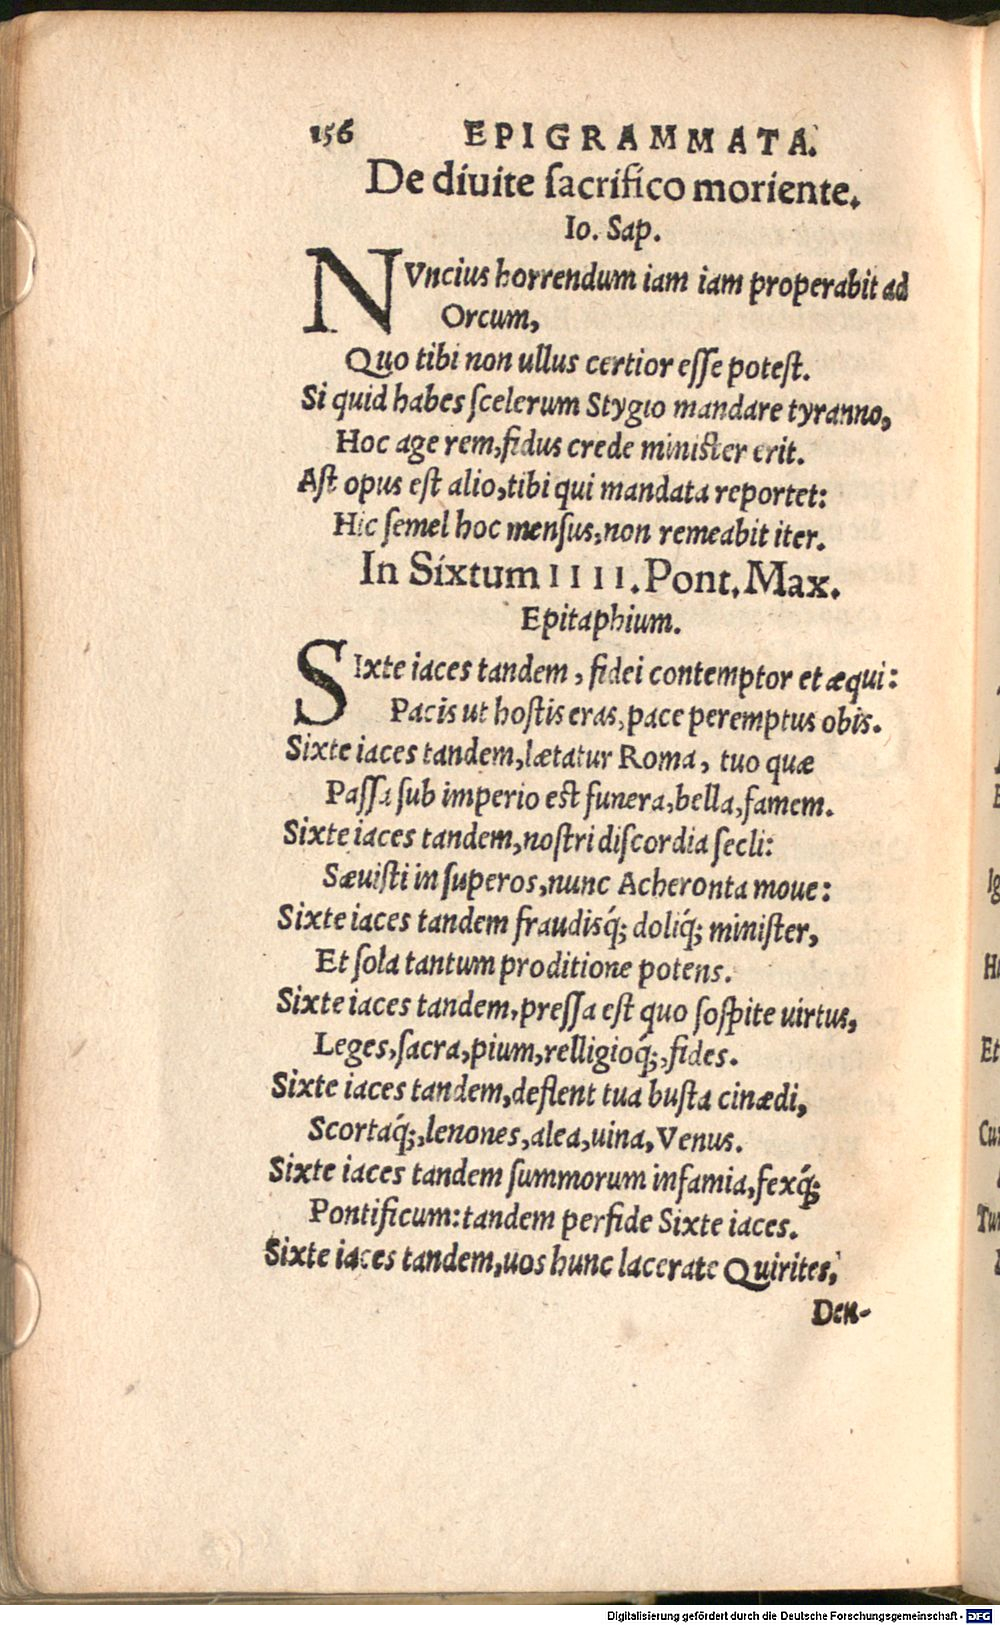 156 EPIGRAMMATA.
De diuite ſacrifico moriente.
Io. Sap.
NVncius horrendum iam iam properabit ad
Orcum,
Quo tibi non ullus certior eſſe poteſt.
Si quid habes ſcelerum Stygio mandare tyranno,
Hoc age rem, fidus crede miniſter erit.
Aſt opus eſt alio, tibi qui mandata reportet:
Hic ſemel hoc menſus, non remeabit iter.
In Sixtum IIII. Pont. Max.
Epitaphium.
SIxte iaces tandem, fidei contemptor et æqui:
Pacis ut hoſtis eras, pace peremptus obis.
Sixte iaces tandem, lætatur Roma, tuo quæ
Paſſa ſub imperio eſt funera, bella, famem.
Sixte iaces tandem, noſtri diſcordia ſecli:
Sæuiſti in ſuperos, nunc Acheronta moue:
Sixte iaces tandem fraudisq́; doliq́; miniſter,
Et ſola tantum proditione potens.
Sixte iaces tandem, preſſa eſt quo ſoſpite uirtus,
Leges, ſacra, pium, relligioq́;, fides.
Sixte iaces tandem, deflent tua buſta cinædi,
Scortaq́;, lenones, alea, uina, Venus.
Sixte iaces tandem ſummorum infamia, fexq́;
Pontificum: tandem perfide Sixte iaces.
Sixte iaces tandem, uos hunc lacerate Quirites,
Den-
Ig
Et
Digitalisierung gefördert durch die Deutsche Forschungsgemeinschaft - DFG